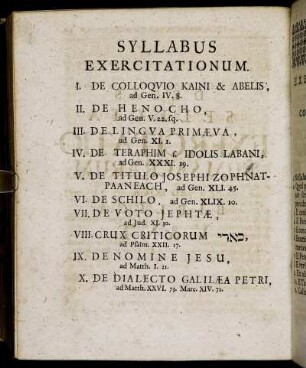 SYLLABUS
EXERCITATIONUM.
I. DE COLLOQVIO KAINI & ABELIS,
ad Gen. IV. 8.
II. DE HENOCHO,
ad Gen. V. 22. sq.
III. DE LINGVA PRIMÆVA,
ad Gen. XI. 1.
IV. DE TERAPHIM & IDOLIS LABANI,
ad Gen. XXXI. 19.
V. DE TITULO JOSEPHI ZOPHNAT-
PAANEACH, ad Gen. XLI. 45.
VI. DE SCHILO, ad Gen. XLIX. 10.
VII. DE VOTO JEPHTÆ,
ad Jud. XI. 30.
VIII. CRUX CRITICORUM כארי,
ad Psalm. XXII. 17.
IX. DE NOMINE JESU,
ad Matth. I. 21.
X. DE DIALECTO GALILÆA PETRI,
ad Matth. XXVI. 73. Marc. XIV. 71.